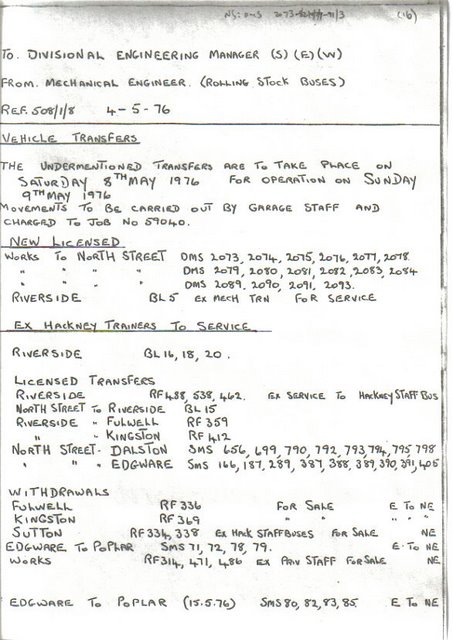 NS: DMS 2073- /3 (16)
TO. DIVISIONAL ENGINEERING MANAGER (S) (E) (W)
FROM. MECHANICAL ENGINEER. (ROLLING STOCK BUSES)
REF. 508/1/8 4-5-76
VEHICLE TRANSFERS
THE UNDERMENTIONED TRANSFERS ARE TO TAKE PLACE ON
SATURDAY 8TH MAY 1976 FOR OPERATION ON SUNDAY
9TH MAY 1976
MOVEMENTS TO BE CARRIED OUT BY GARAGE STAFF AND
CHARGED TO JOB NO 59040.
NEW LICENSED
WORKS TO NORTH STREET DMS 2073, 2074, 2075, 2076, 2077, 2078.
" " " " DMS 2079, 2080, 2081, 2082, 2083, 2084
" " " " DMS 2089, 2090, 2091, 2093.
RIVERSIDE BL5 EX MECH TRN FOR SERVICE
EX HACKNEY TRAINERS TO SERVICE
RIVERSIDE BL 16, 18, 20.
LICENSED TRANSFERS
RIVERSIDE RF 488, 538, 462. EX SERVICE TO HACKNEY STAFF BUS
NORTH STREET TO RIVERSIDE BL 15
RIVERSIDE " FULWELL RF 359
" " KINGSTON RF 412
NORTH STREET. DALSTON SMS 656, 699, 790, 792, 793, 794, 795, 798
" " " EDGWARE SMS 166, 187, 289, 387, 388, 389, 390, 391, 405
WITHDRAWALS
FULWELL RF 336 FOR SALE E TO NE
KINGSTON RF 369 " " " " "
SUTTON RF 334, 338 EX HACK STAFF BUSES FOR SALE NE
EDGWARE TO POPLAR SMS 71, 72, 78, 79. E. TO NE
WORKS RF 314, 471, 486 EX PRIV STAFF FOR SALE NE
EDGWARE TO POPLAR (15.5.76) SMS 80, 82, 83, 85 E TO NE